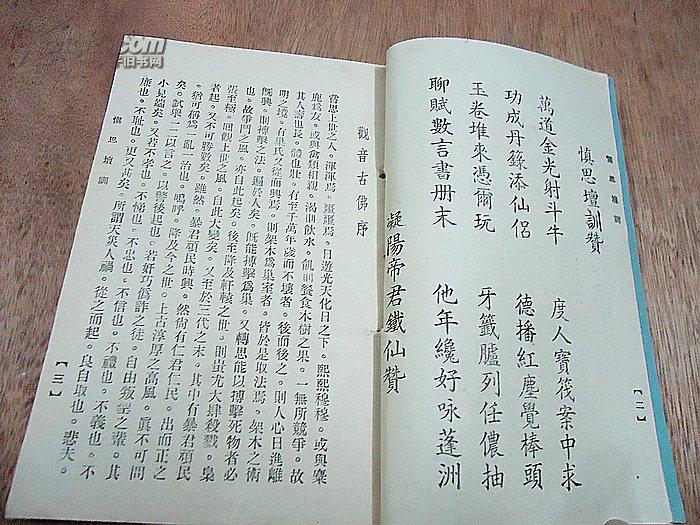 慎思壇訓
慎思壇訓贊
萬道金光射斗牛 度人寶筏案中求
功成丹籙添仙侶 德播紅塵覺棒頭
玉卷堆來憑爾玩 牙籤臚列任儂抽
聊賦數言書册末 他年纔好咏蓬洲
凝陽帝君鐵仙贊
【二】
觀音古佛序
嘗思上世之人。渾渾焉。噩噩焉。日遊光天化日之下。熙熙穆穆。或與麋
鹿為友。或與禽獸相親。渴則飲水。飢則餐食木樹之果。一無所競爭。故
其人壽也長。體也壯。有至千萬年歲而不壞者。後而後之。則人心日進離
明之境。有巢氏又從而興焉。則架木為巢室者。皆於是取法焉。架木之術
既興。則搏擊之法。遍於人矣。既能搏擊為巢。又轉思能以搏擊死物者必
也。故爭鬥之風。亦自此起矣。後至降及軒轅之世。則蚩尤大肆殺戮。梟
張至極。回觀上世之風。自此大變矣。又至於三代之末。其中有暴君頑民
者起。又不可勝數矣。雖然。暴君頑民時興。然尚有仁君仁民。出而正之
。猶可稱為一亂一治也。嗚呼。降及今之世。上古淳厚之高風。眞不可問
矣。試舉一二以言之。以警後起也。若奸巧僞詐之徒。自由叛
之輩。其
小兒端矣。又若不孝也。不悌也。不忠也。不信也。不禮也。不義也。不
廉也。不恥也。更又甚矣。所謂天災人禍。從之而起。良自取也。悲夫。
慎思壇訓
【三】
.com
旧书网